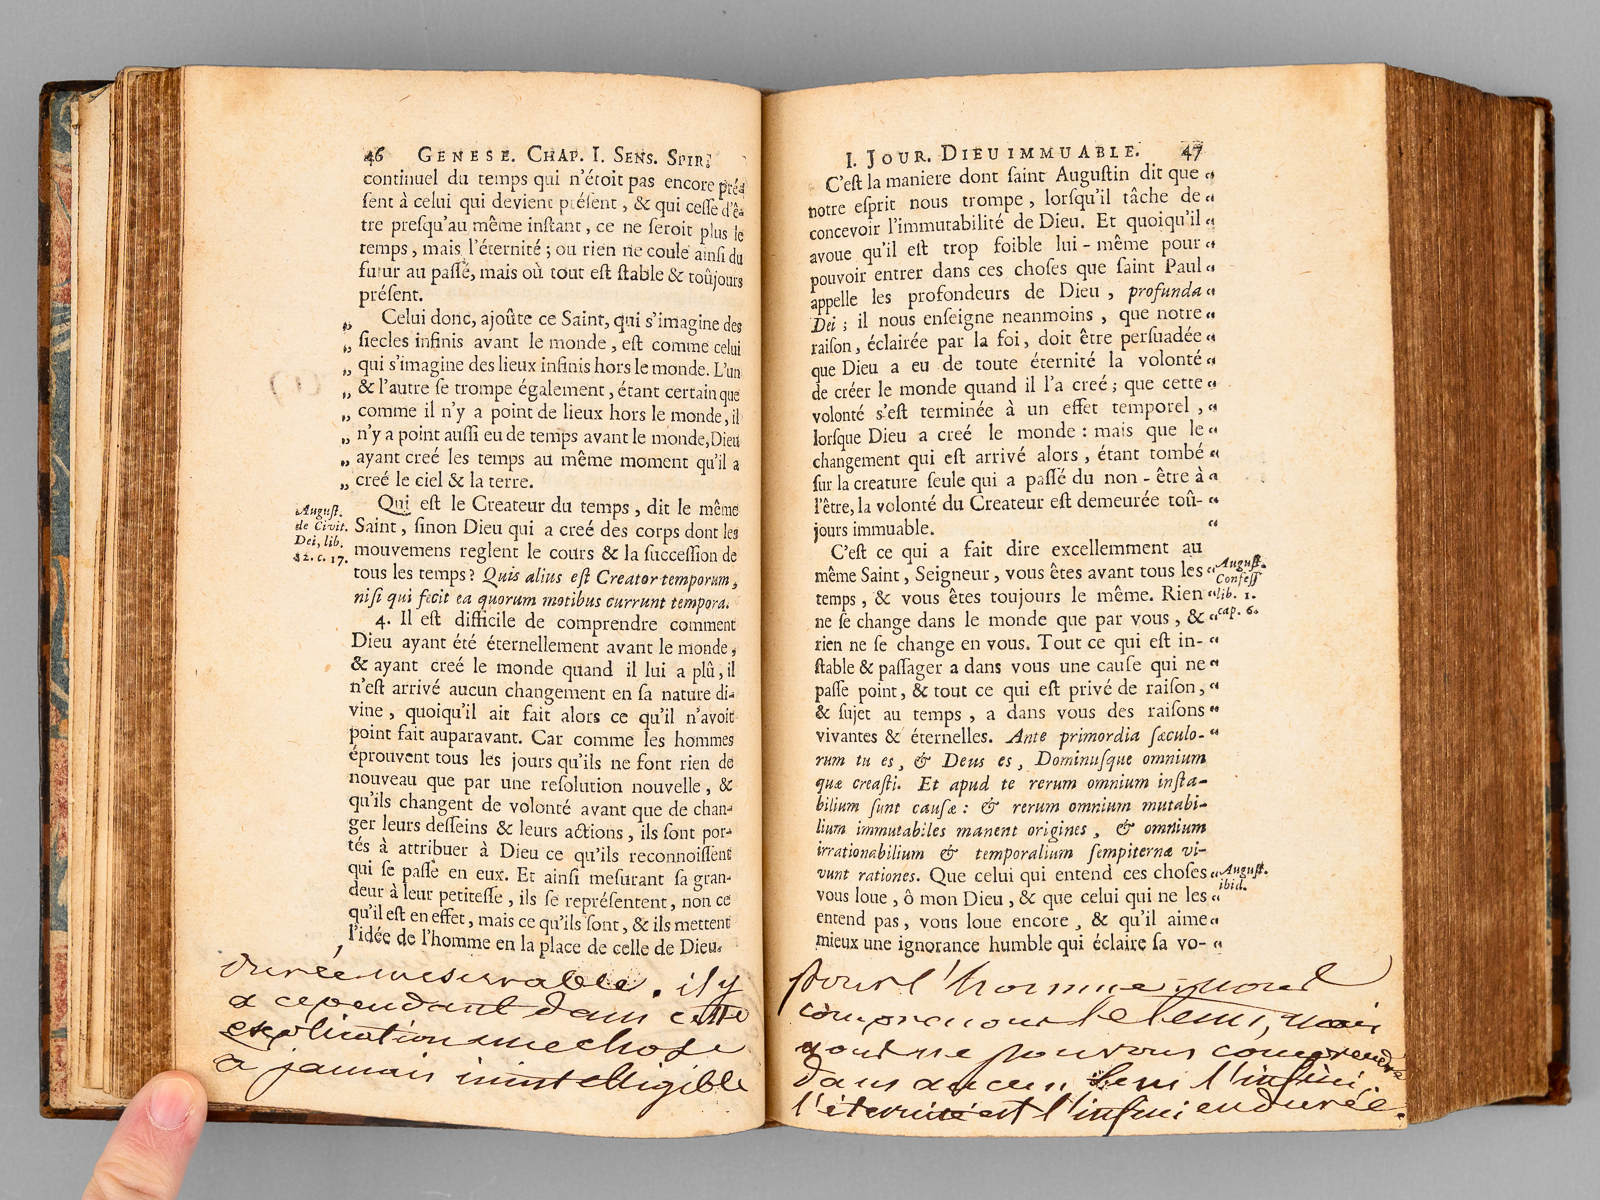 46 GENESE. CHAP. I. SENS. SPIR.
continuel du temps qui n'étoit pas encore pré-
ſent à celui qui devient préſent, & qui ceſſe d'ê-
tre preſqu'au même inſtant, ce ne ſeroit plus le
temps, mais l'éternité; ou rien ne coule ainſi du
futur au paſſé, mais où tout eſt ſtable & toûjours
préſent.
Celui donc, ajoûte ce Saint, qui s'imagine des
„ ſiecles infinis avant le monde, eſt comme celui
„ qui s'imagine des lieux infinis hors le monde. L'un
„ & l'autre ſe trompe également, étant certain que
„ comme il n'y a point de lieux hors le monde, il
„ n'y a point auſſi eu de temps avant le monde, Dieu
„ ayant creé les temps au même moment qu'il a
„ creé le ciel & la terre.
Qui eſt le Createur du temps, dit le même
Saint, ſinon Dieu qui a creé des corps dont les
mouvemens reglent le cours & la ſucceſſion de
tous les temps? Quis alius eſt Creator temporum,
niſi qui fecit ea quorum motibus currunt tempora.
Auguſt.
de Civit.
Dei, lib.
12. c. 17.
4. Il eſt difficile de comprendre comment
Dieu ayant été éternellement avant le monde,
& ayant creé le monde quand il lui a plû, il
n'eſt arrivé aucun changement en ſa nature di-
vine, quoiqu'il ait fait alors ce qu'il n'avoit
point fait auparavant. Car comme les hommes
éprouvent tous les jours qu'ils ne font rien de
nouveau que par une reſolution nouvelle, &
qu'ils changent de volonté avant que de chan-
ger leurs deſſeins & leurs actions, ils ſont por-
tés à attribuer à Dieu ce qu'ils reconnoiſſent
qui ſe paſſe en eux. Et ainſi meſurant ſa gran-
deur à leur petiteſſe, ils ſe repréſentent, non ce
qu'il eſt en effet, mais ce qu'ils ſont, & ils mettent
l'idée de l'homme en la place de celle de Dieu.
durée mesurable. il y
a cependant dans cette
explication une chose
a jamais inintelligible
I. JOUR. DIEU IMMUABLE. 47
C'eſt la maniere dont ſaint Auguſtin dit que “
notre eſprit nous trompe, lorſqu'il tâche de “
concevoir l'immutabilité de Dieu. Et quoiqu'il “
avoue qu'il eſt trop foible lui-même pour “
pouvoir entrer dans ces choſes que ſaint Paul “
appelle les profondeurs de Dieu, profunda “
Dei; il nous enſeigne neanmoins, que notre “
raiſon, éclairée par la foi, doit être perſuadée “
que Dieu a eu de toute éternité la volonté “
de créer le monde quand il l'a creé; que cette “
volonté s'eſt terminée à un effet temporel, “
lorſque Dieu a creé le monde: mais que le “
changement qui eſt arrivé alors, étant tombé “
ſur la creature ſeule qui a paſſé du non-être à “
l'être, la volonté du Createur eſt demeurée toû- “
jours immuable. “
C'eſt ce qui a fait dire excellemment au
même Saint, Seigneur, vous êtes avant tous les “
temps, & vous êtes toujours le même. Rien “
ne ſe change dans le monde que par vous, & “
rien ne ſe change en vous. Tout ce qui eſt in- “
ſtable & paſſager a dans vous une cauſe qui ne “
paſſe point, & tout ce qui eſt privé de raiſon, “
& ſujet au temps, a dans vous des raiſons “
vivantes & éternelles. Ante primordia ſæculo- “
rum tu es, & Deus es, Dominuſque omnium
quæ creaſti. Et apud te rerum omnium inſta-
bilium ſunt cauſæ: & rerum omnium mutabi-
lium immutabiles manent origines, & omnium
irrationabilium & temporalium ſempiternæ vi-
vunt rationes. Que celui qui entend ces choſes “
vous loue, ô mon Dieu, & que celui qui ne les “
entend pas, vous loue encore, & qu'il aime “
mieux une ignorance humble qui éclaire ſa vo- “
Auguſt.
Confeſſ
lib. 1.
cap. 6.
Auguſt.
ibid.
pour l'homme. nous
comprenons le tems, mais
nous ne pouvons comprendre
dans aucun sens l'infini.
l'éternité est l'infini en durée.